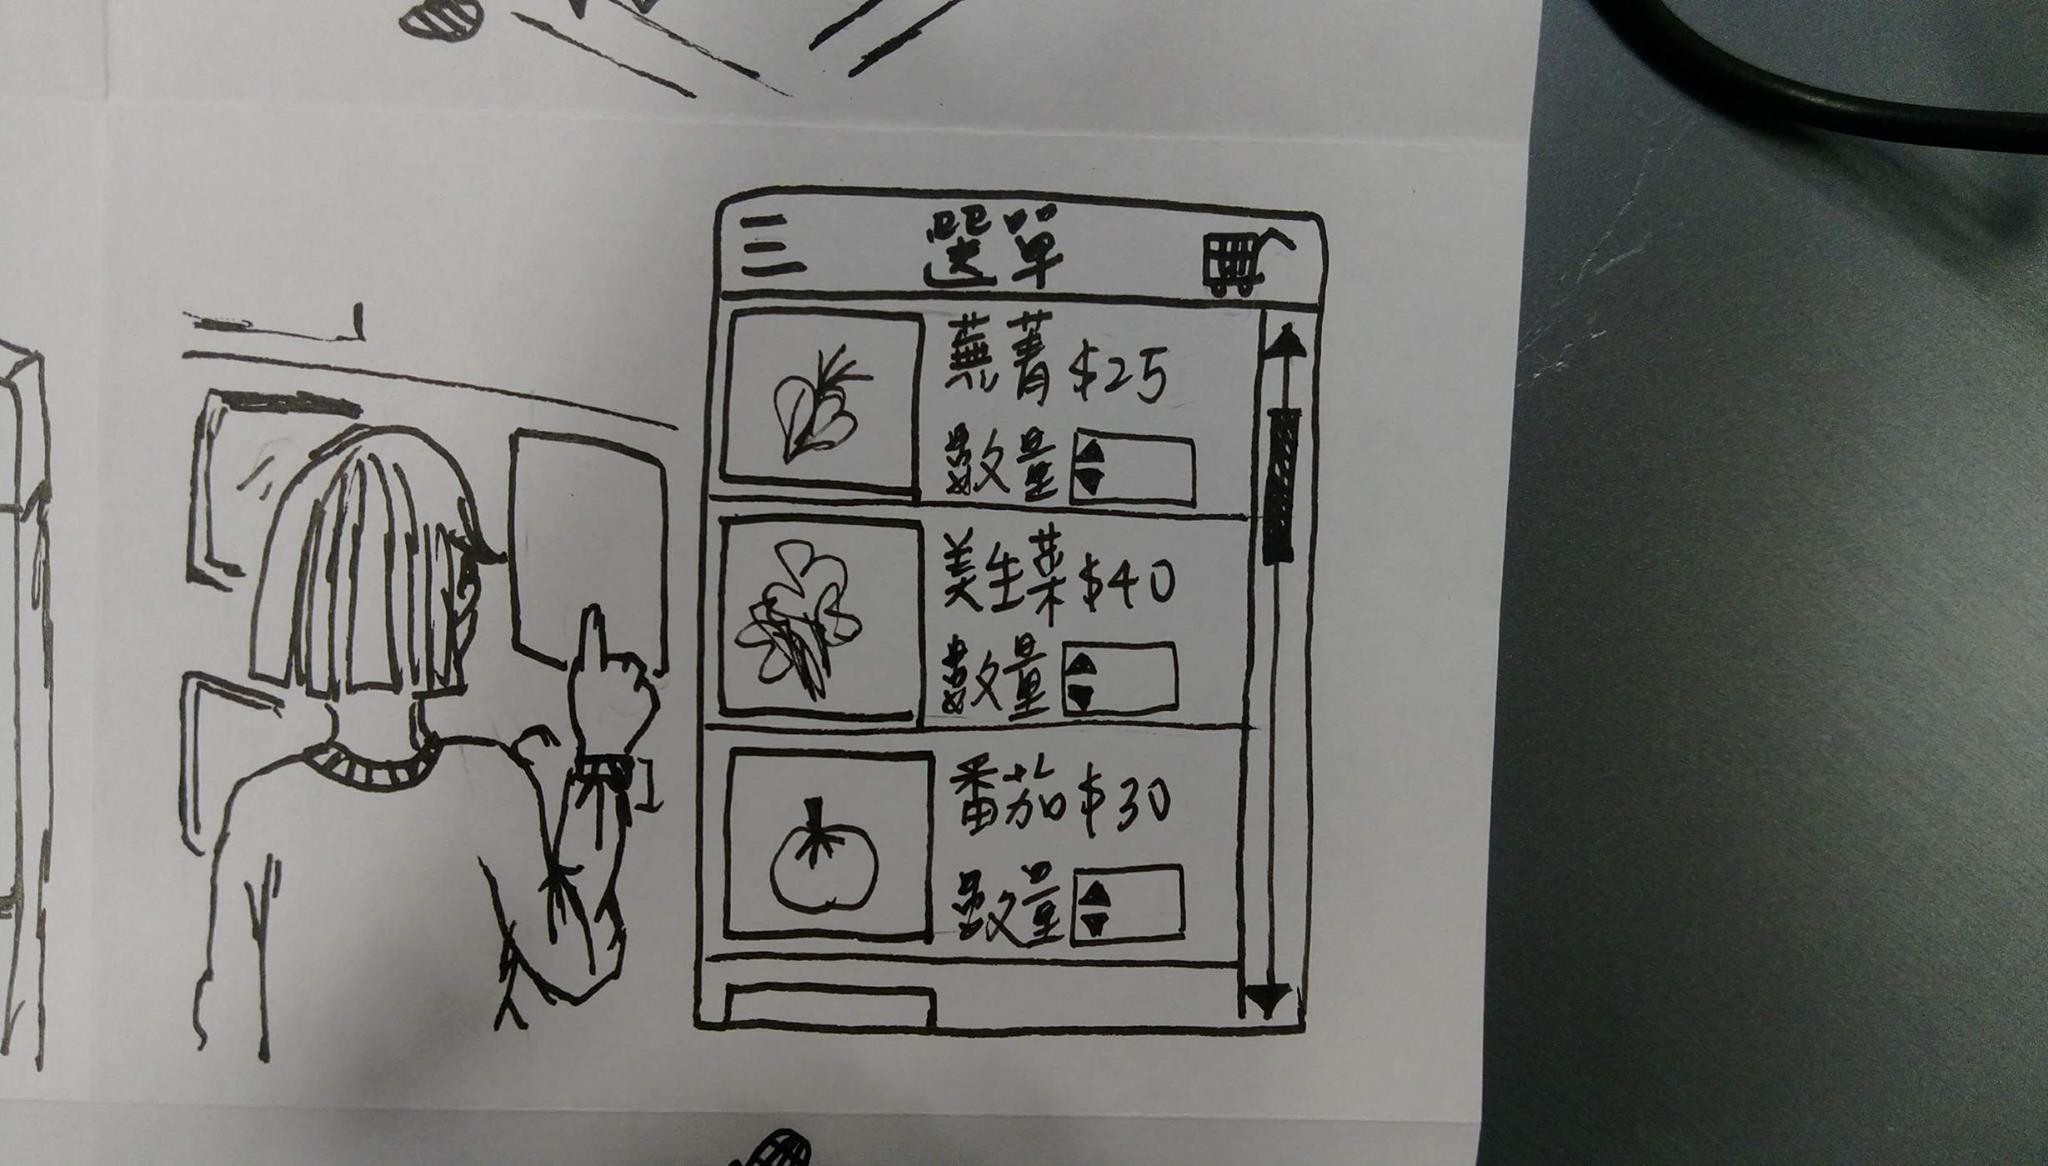 選單
蕪菁 $25
數量
美生菜 $40
數量
番茄 $30
數量